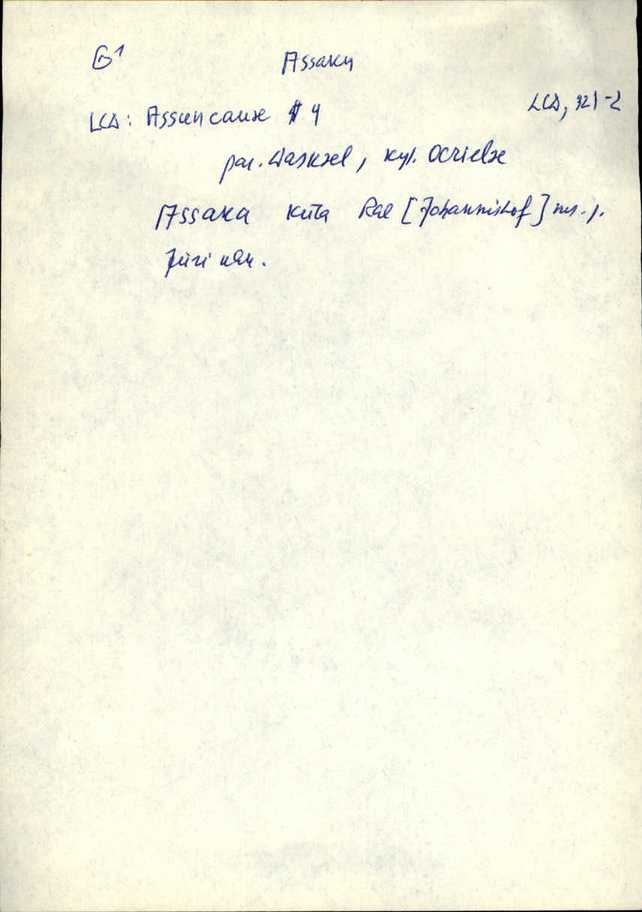 Assaku
LCD: Assencauæ 4 LCD, 321-2
par. Waskæl, kyl. Ocrielæ
Assaka küla Rae [Johannishof] ms. j.
Jüri